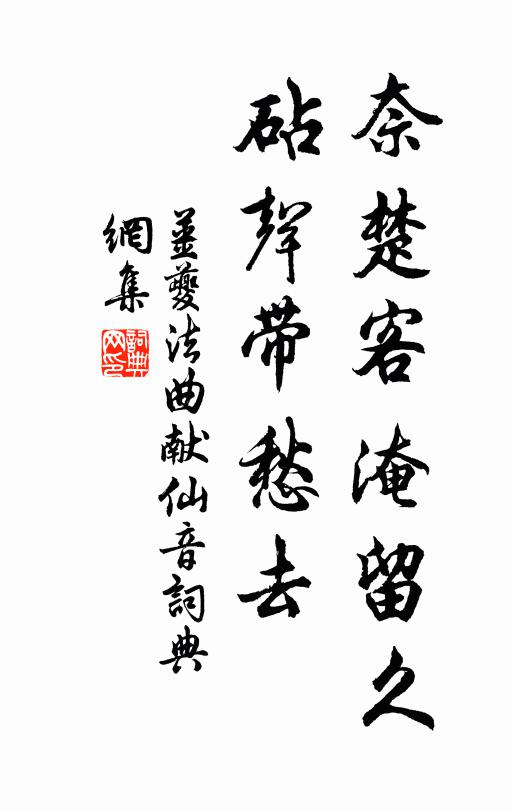 奈楚客淹留久
砧聲带愁去
姜夔法曲献仙音詞典
網集
詞典
网印